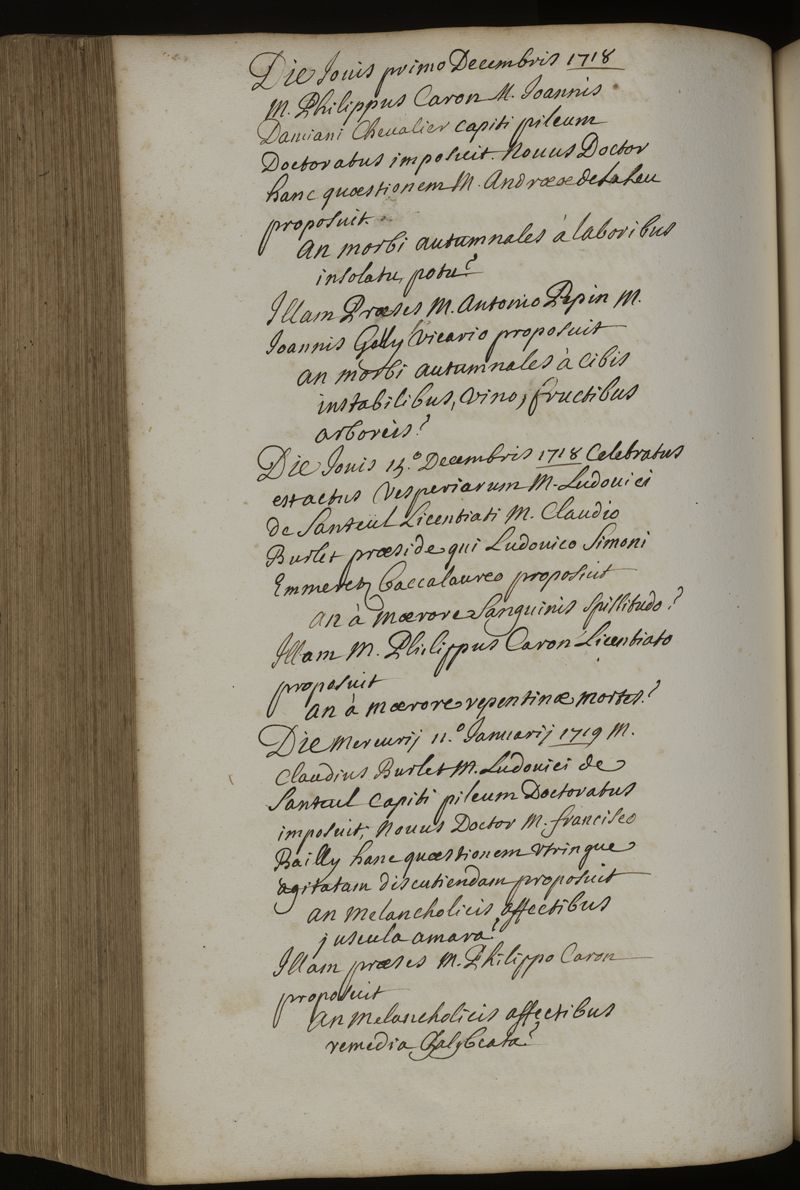 Die Jouis primo Decembris 1718
M. Philippus Caron M. Joannis
Damiani Cheualier capiti pileum
Doctoratus imposuit. Nouus Doctor
hanc quæstionem M. Andræœ de laleu
proposuit.
An morbi autumnales à laboribus
insolatu, potu?
Illam Præses M. Antonio Pepin M.
Joannis Gelly Vicario proposuit
an morbi autumnales à Cibis
instabilibus, Vino, fructibus
arboreis?
Die Jouis 15.° Decembris 1718 Celebratus
est actus Vesperiarum M. Ludouici
de Santeul Licentiati M. Claudio
Burlet præside qui Ludouico Simoni
Emmerez Baccalaureo proposuit
an à mœrore Sanguinis Spissitudo?
Illam M. Philippus Caron Licentiato
proposuit
an à mœrore repentinæ mortes?
Die Mercurij 11.° Januarij 1719 M.
Claudius Burlet M. Ludouici de
Santeul Capiti pileum Doctoratus
imposuit, Nouus Doctor M. francisco
Bailly hanc quæstionem Vtrinque
agitatam discutiendam proposuit
an Melancholicis affectibus
juscula amara?
Illam præses M. Philippo Caron
proposuit
An Melancholicis affectibus
remedia Chalybeata?